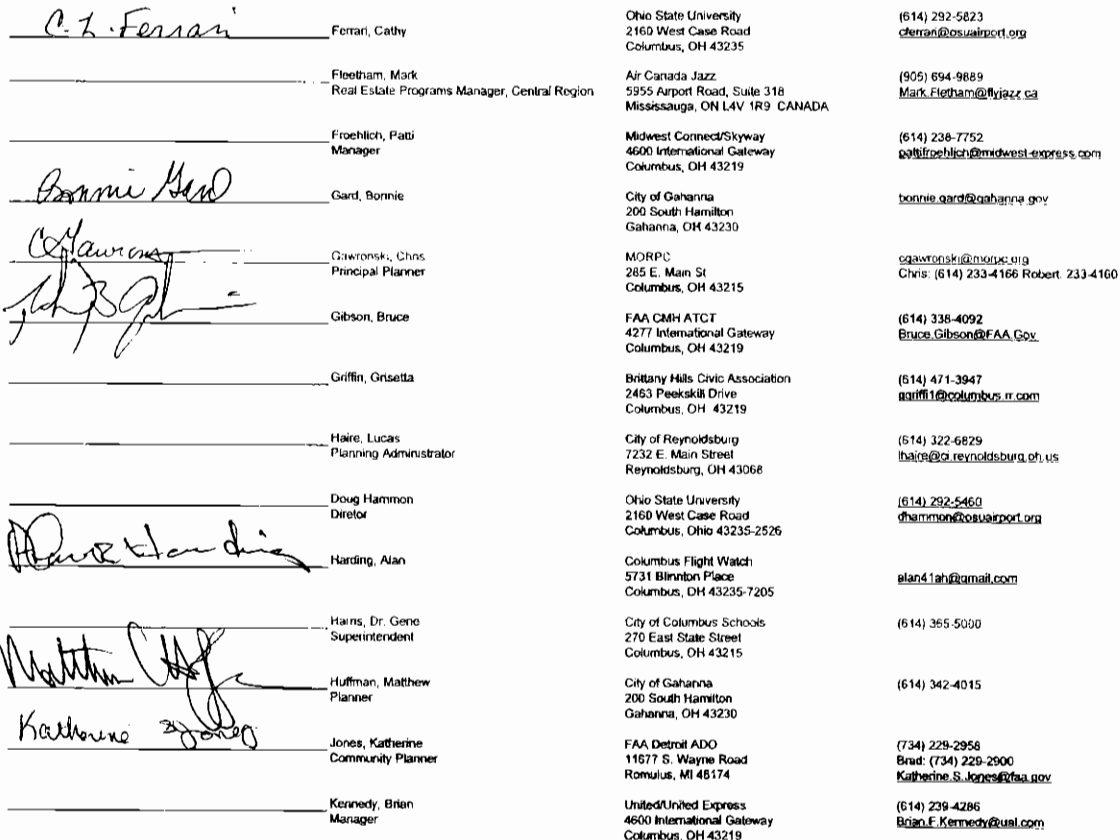 C. L. Ferrari
Ferrari, Cathy
Ohio State University
2160 West Case Road
Columbus, OH 43235
(614) 292-5823
cferrari@osuairport.org
Fleetham, Mark
Real Estate Programs Manager, Central Region
Air Canada Jazz
5955 Airport Road, Suite 318
Mississauga, ON L4V 1R9 CANADA
(905) 694-9889
Mark.Fletham@flyjazz.ca
Froehlich, Patti
Manager
Midwest Connect/Skyway
4600 International Gateway
Columbus, OH 43219
(614) 238-7752
pattifroehlich@midwest-express.com
Bonnie Gard
Gard, Bonnie
City of Gahanna
200 South Hamilton
Gahanna, OH 43230
bonnie.gard@gahanna.gov
Gawronski, Chris
Principal Planner
MORPC
285 E. Main St
Columbus, OH 43215
cgawronski@morpc.org
Chris: (614) 233-4166 Robert. 233-4160
Gibson, Bruce
FAA CMH ATCT
4277 International Gateway
Columbus, OH 43219
(614) 338-4092
Bruce.Gibson@FAA.Gov
Griffin, Grisetta
Brittany Hills Civic Association
2463 Peekskill Drive
Columbus, OH 43219
(614) 471-3947
ggriffi1@columbus.rr.com
Haire, Lucas
Planning Administrator
City of Reynoldsburg
7232 E. Main Street
Reynoldsburg, OH 43068
(614) 322-6829
lhaire@ci.reynoldsburg.oh.us
Doug Hammon
Diretor
Ohio State University
2160 West Case Road
Columbus, Ohio 43235-2526
(614) 292-5460
dhammon@osuairport.org
Harding, Alan
Columbus Flight Watch
5731 Blinnton Place
Columbus, OH 43235-7205
alan41ah@gmail.com
Harris, Dr. Gene
Superintendent
City of Columbus Schools
270 East State Street
Columbus, OH 43215
(614) 365-5000
Huffman, Matthew
Planner
City of Gahanna
200 South Hamilton
Gahanna, OH 43230
(614) 342-4015
Katherine S Jones
Jones, Katherine
Community Planner
FAA Detroit ADO
11677 S. Wayne Road
Romulus, MI 48174
(734) 229-2958
Brad: (734) 229-2900
Katherine.S.Jones@faa.gov
Kennedy, Brian
Manager
United/United Express
4600 International Gateway
Columbus, OH 43219
(614) 239-4286
Brian.F.Kennedy@ual.com